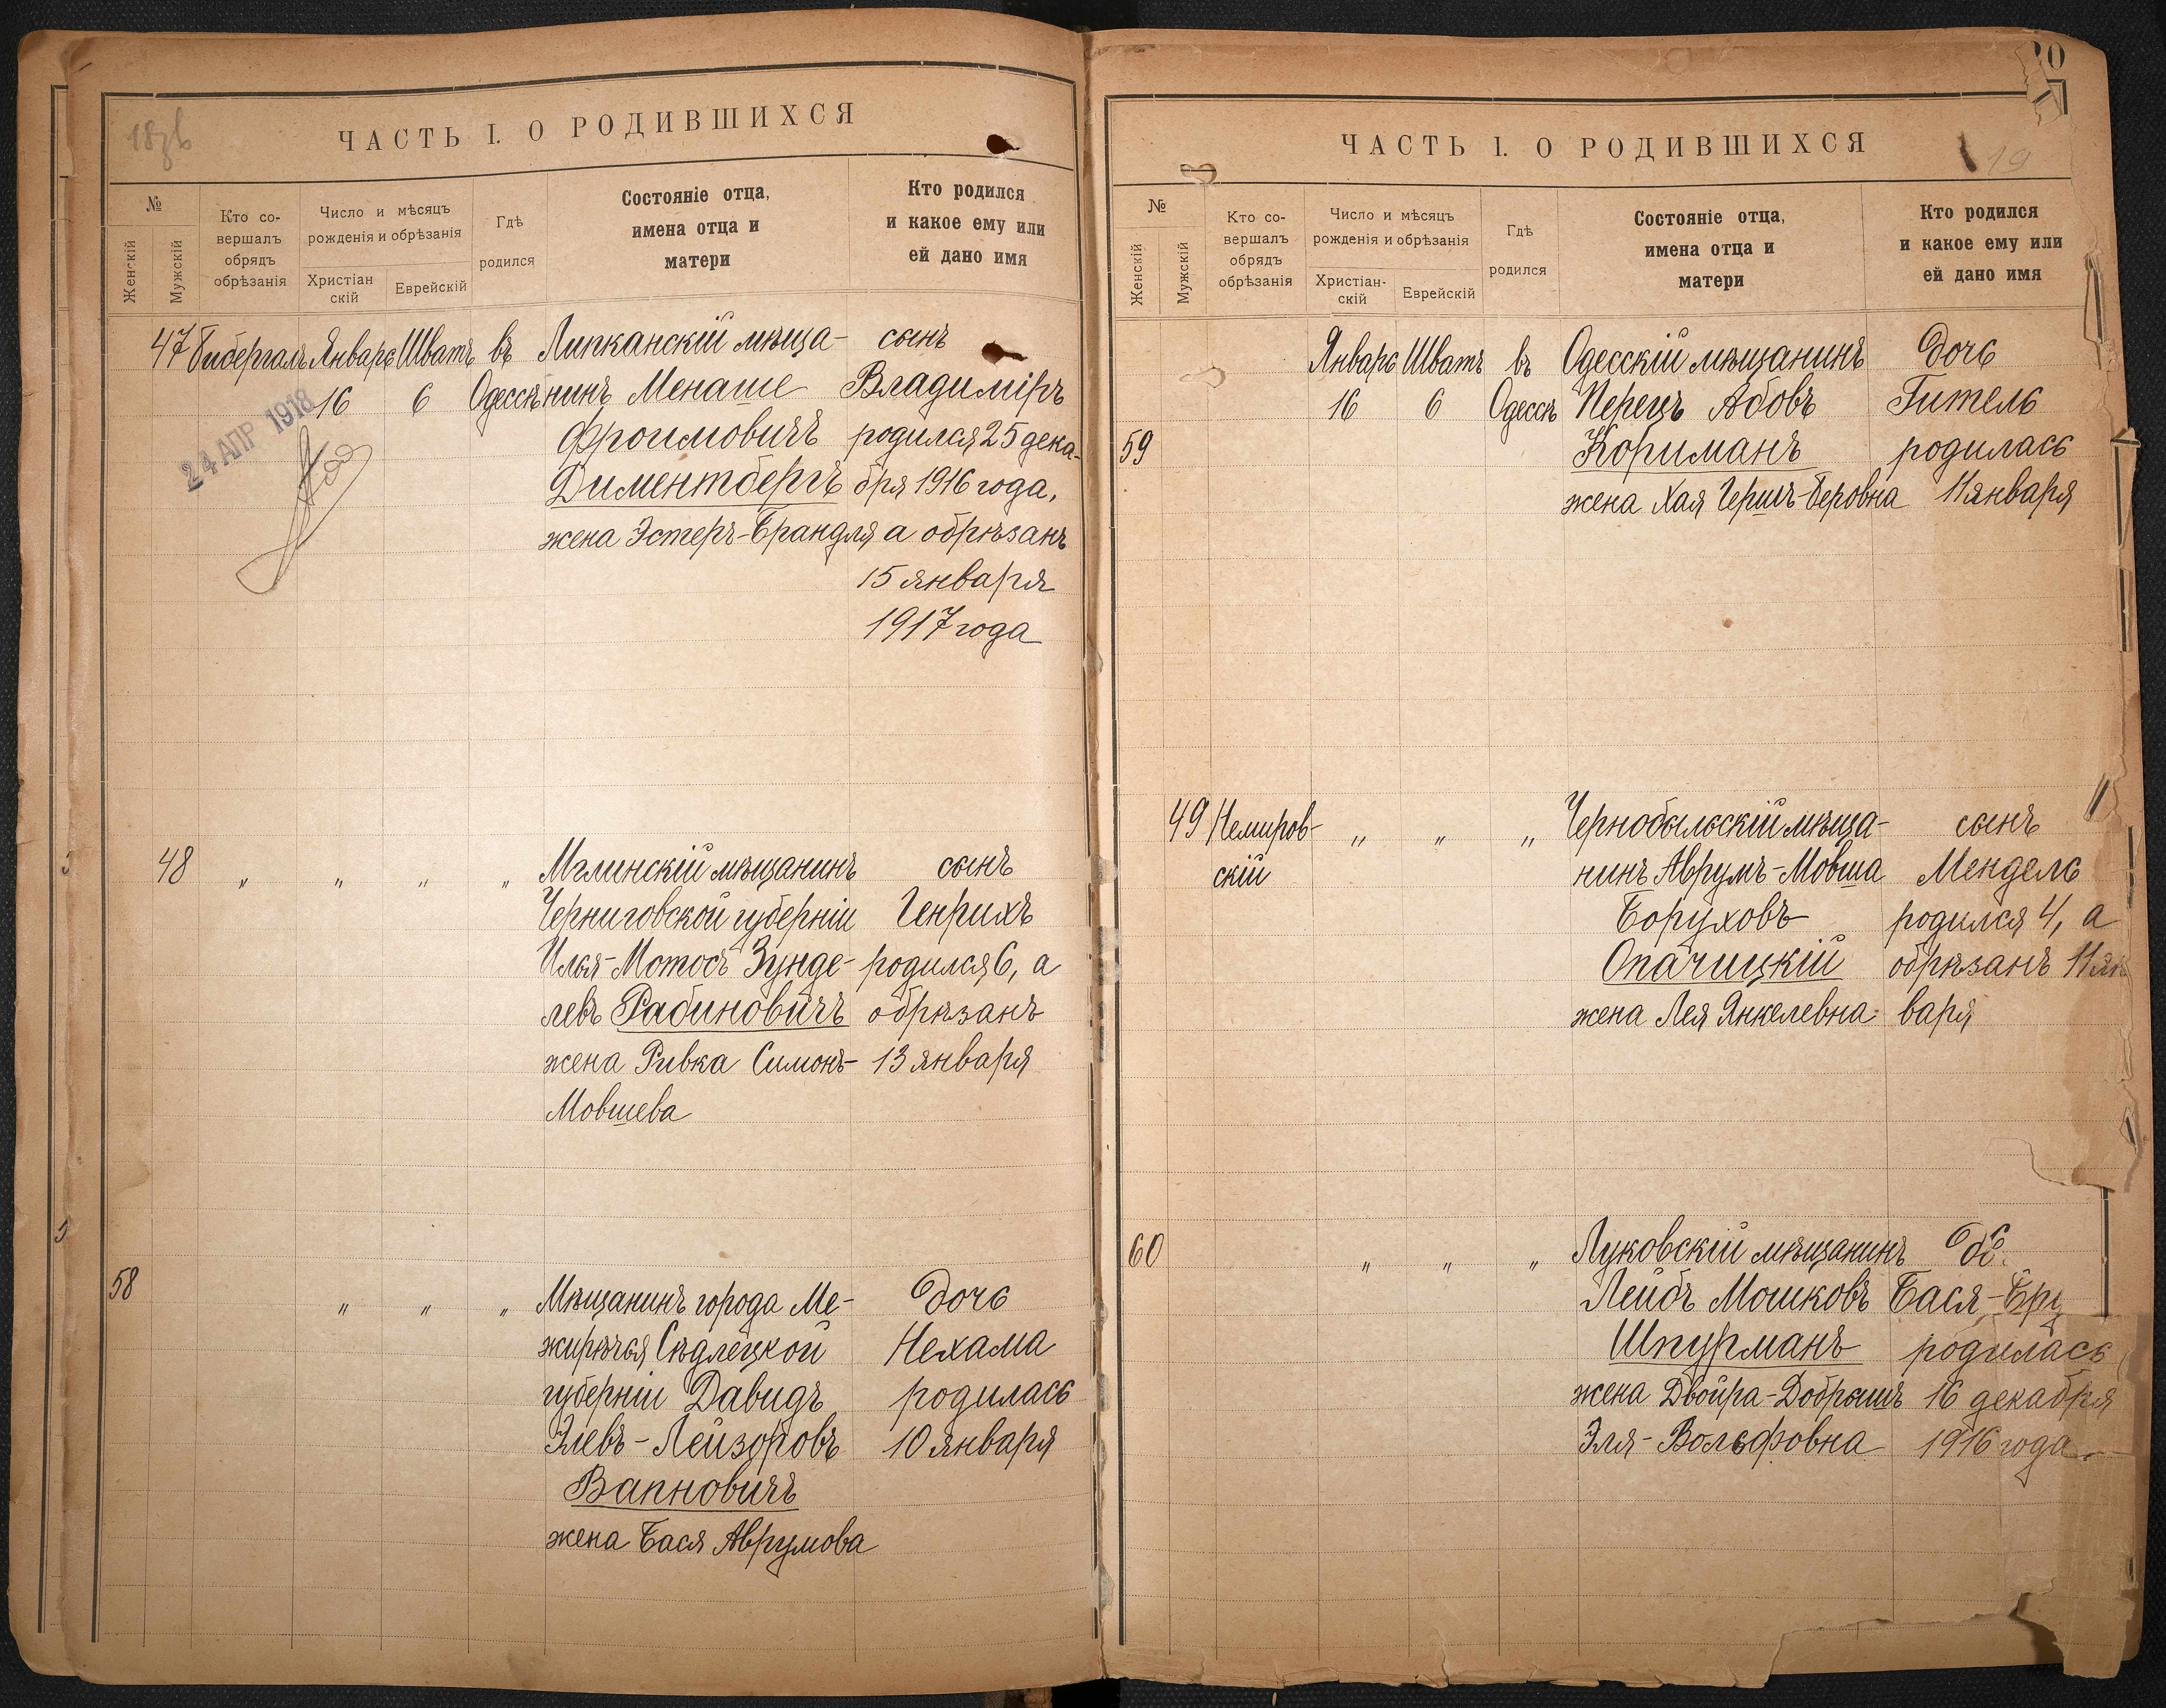 ЧАСТЬ I. О РОДИВШИХСЯ
№
Женскій
Мужскій
Кто со-
вершалъ
обрядъ
обрѣзанія
Число и мѣсяцъ
рожденія и обрѣзанія
Христіан
скій
Еврейскій
Гдѣ
родился
Состояніе отца,
имена отца и
матери
Кто родился
и какое ему или
ей дано имя
47 Январь Шватъ въ Липканскій мѣща- сынъ
16 6 Одессѣ нинъ Менаше Владиміръ
24 АПР 1918
Фроимовичъ родился 25 дека-
Диментбергъ бря 1916 года,
жена Эстеръ-Брандля а обрѣзанъ
15 января
1917 года
48 „ „ „ „ Мглинскій мѣщанинъ сынъ
Черниговской губерніи Генрихъ
Илья-Мотосъ Зунде- родился 6, а
левъ Рабиновичъ обрѣзанъ
жена Ривка Симонъ- 13 января
Мовшева
58 „ „ „ Мѣщанинъ города Ме- дочь
жирѣчья Сѣдлецкой Нехама
губерніи Давидъ родилась
Элевъ-Лейзоровъ 10 января
Вапновичъ
жена Бася Аврумова
ЧАСТЬ I. О РОДИВШИХСЯ
19
№
Женскій
Мужскій
Кто со-
вершалъ
обрядъ
обрѣзанія
Число и мѣсяцъ
рожденія и обрѣзанія
Христіан-
скій
Еврейскій
Гдѣ
родился
Состояніе отца,
имена отца и
матери
Кто родился
и какое ему или
ей дано имя
Январь Шватъ въ Одесскій мѣщанинъ дочь
16 6 Одессѣ Перецъ Абовъ Гитель
59 Кориманъ родилась
жена Хая Гершъ-Беровна 11 января
49 Немиров- „ „ „ Чернобыльскій мѣща- сынъ
скій нинъ Аврумъ-Мовша Мендель
Боруховъ родился 4, а
Опачицкій обрѣзанъ 11 ян
жена Лея Янкелевна варя
60 „ „ „ Луковскій мѣщанинъ
Лейбъ Мошковъ Бася-
Шпурманъ родилась
жена Двойра-Добрышъ 16 декабря
Эля-Вольфовна 1916 года